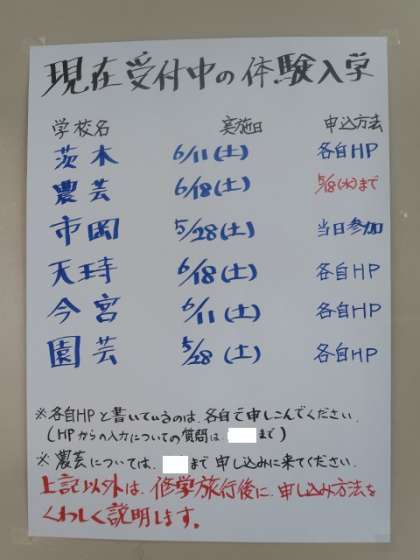 現在受付中の体験入学
学校名 実施日 申込方法
茨木 6/11(土) 各自HP
農芸 6/18(土) 5/18(水)まで
市岡 5/28(土) 当日参加
天王寺 6/18(土) 各自HP
今宮 6/11(土) 各自HP
園芸 5/28(土) 各自HP
※各自HPと書いているのは、各自で申しこんでください。
(HPからの入力についての質問は、まで)
※農芸については、まで申し込みに来てください。
上記以外は、修学旅行後に、申し込み方法を
くわしく説明します。